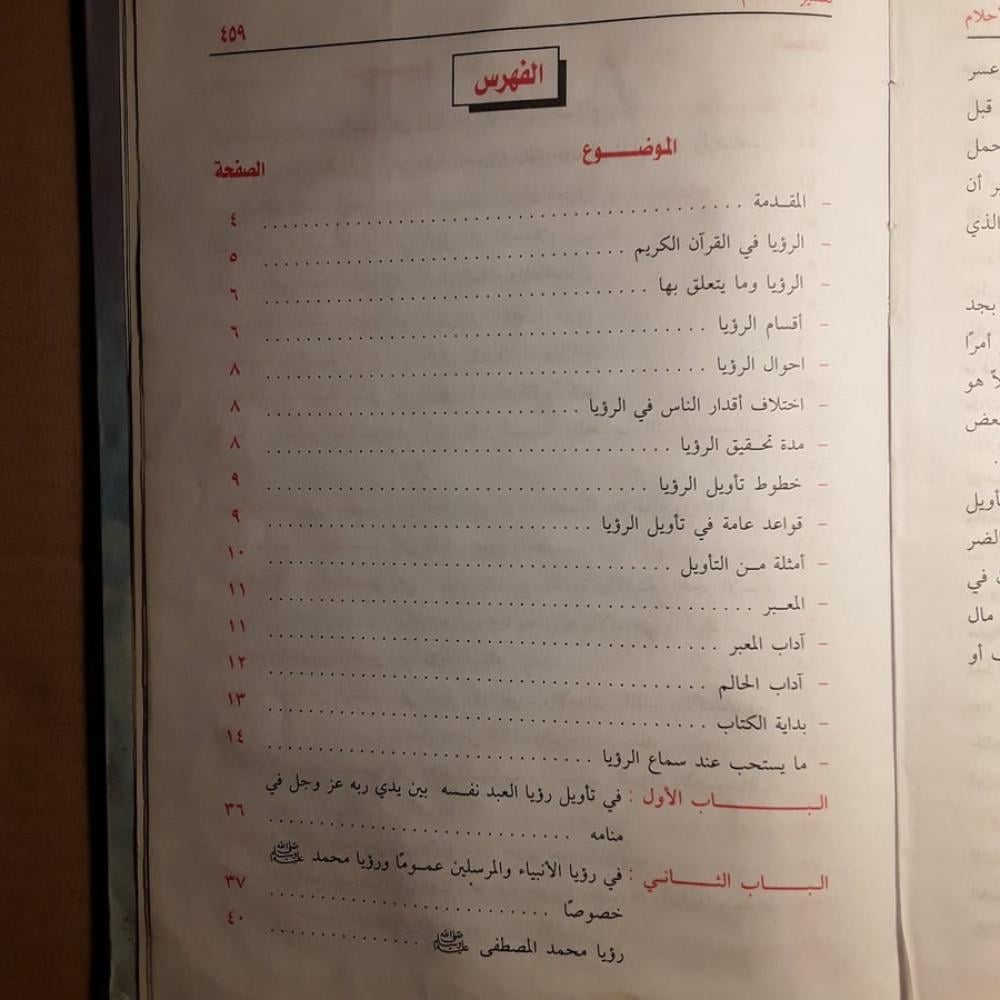 ٤٥٩
الفهرس
الموضـــــوع
الصفحة
- المقـدمة ٤
- الرؤيا في القرآن الكريم ٥
- الرؤيا وما يتعلق بها ٦
- أقسام الرؤيا ٦
- احوال الرؤيا ٨
- اختلاف أقدار الناس في الرؤيا ٨
- مدة تحـقيق الرؤيا ٨
- خطوط تأويل الرؤيا ٩
- قواعد عامة في تأويل الرؤيا ٩
- أمثلة مـن التأويل ١٠
- المعـبر ١١
- آداب المعبر ١١
- آداب الحالم ١٢
- بداية الكتاب ١٣
- ما يستحب عند سماع الرؤيا ١٤
البـــــاب الأول : في تأويل رؤيا العبد نفسه بين يدي ربه عز وجل في
منامه ٣٦
البـــاب الثـــاني : في رؤيا الأنبياء والمرسلين عمـومًا ورؤيا محمد ﷺ
خصوصًا ٣٧
رؤيا محمد المصطفى ﷺ ٤٠
أحلام
عسر
قبل
حمل
أن
الذي
بجد
أمرًا
هو
أويل
الضر
في
مال
أو